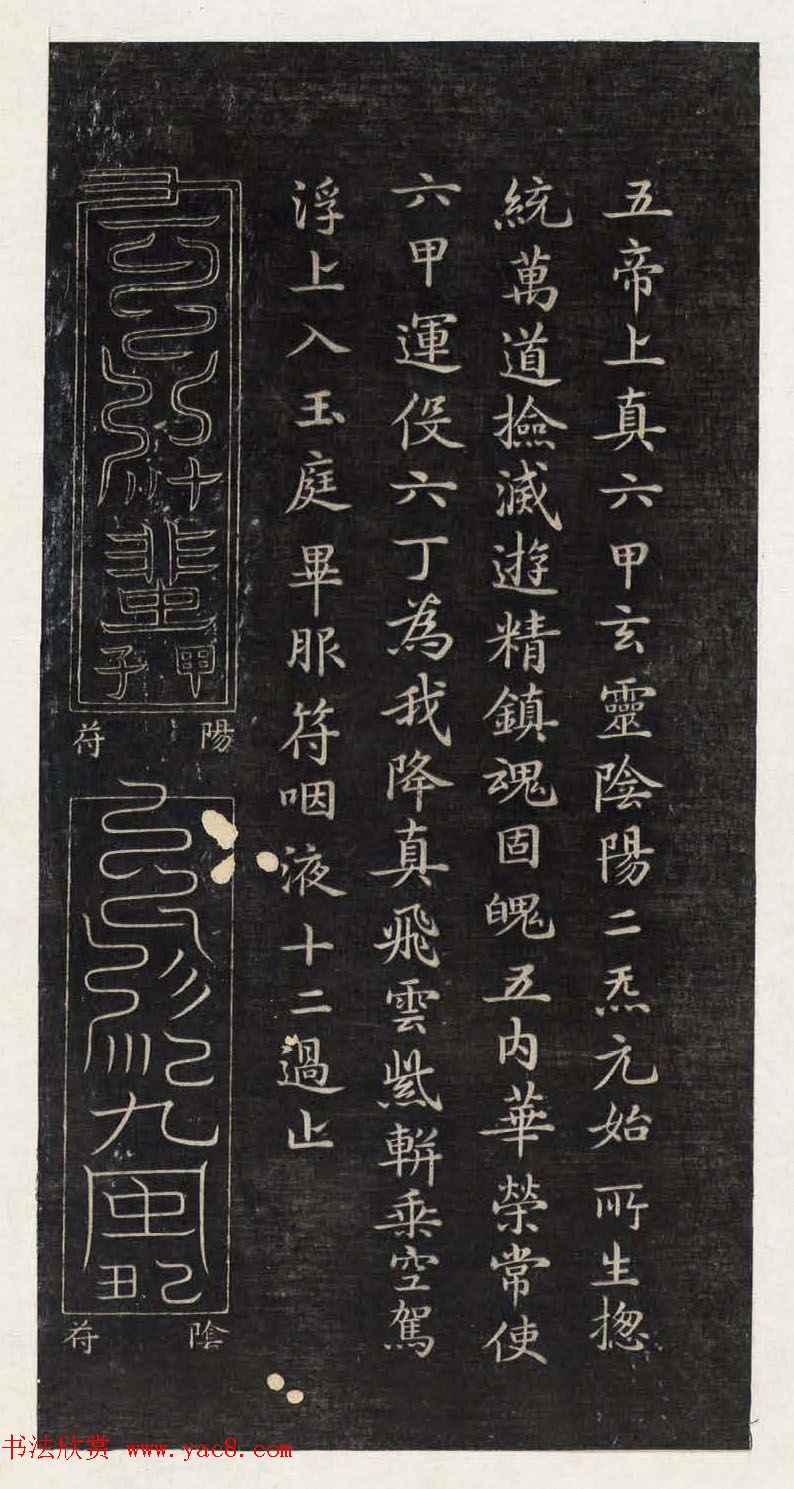 五帝上真六甲玄靈陰陽二炁元始所生揔
統萬道撿滅遊精鎮魂固魄五內華榮常使
六甲運役六丁為我降真飛雲紫軿乗空駕
浮上入玉庭畢服符咽液十二過止
甲子
陽符
己丑
陰符
书法欣赏 www.yac8.com